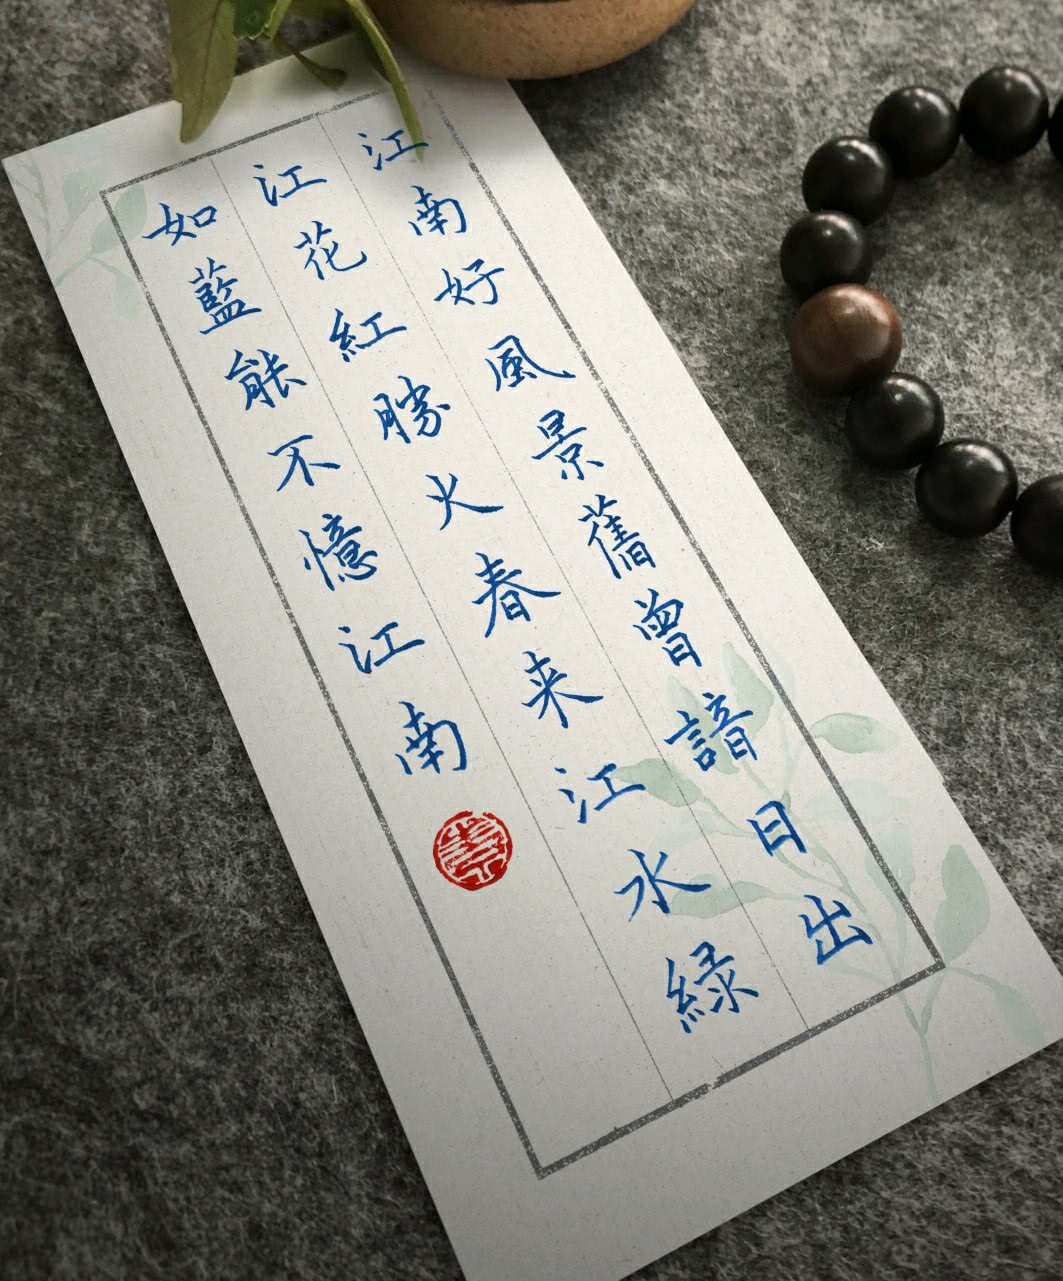 江南好風景舊曾諳日出
江花紅勝火春来江水緑
如藍能不憶江南